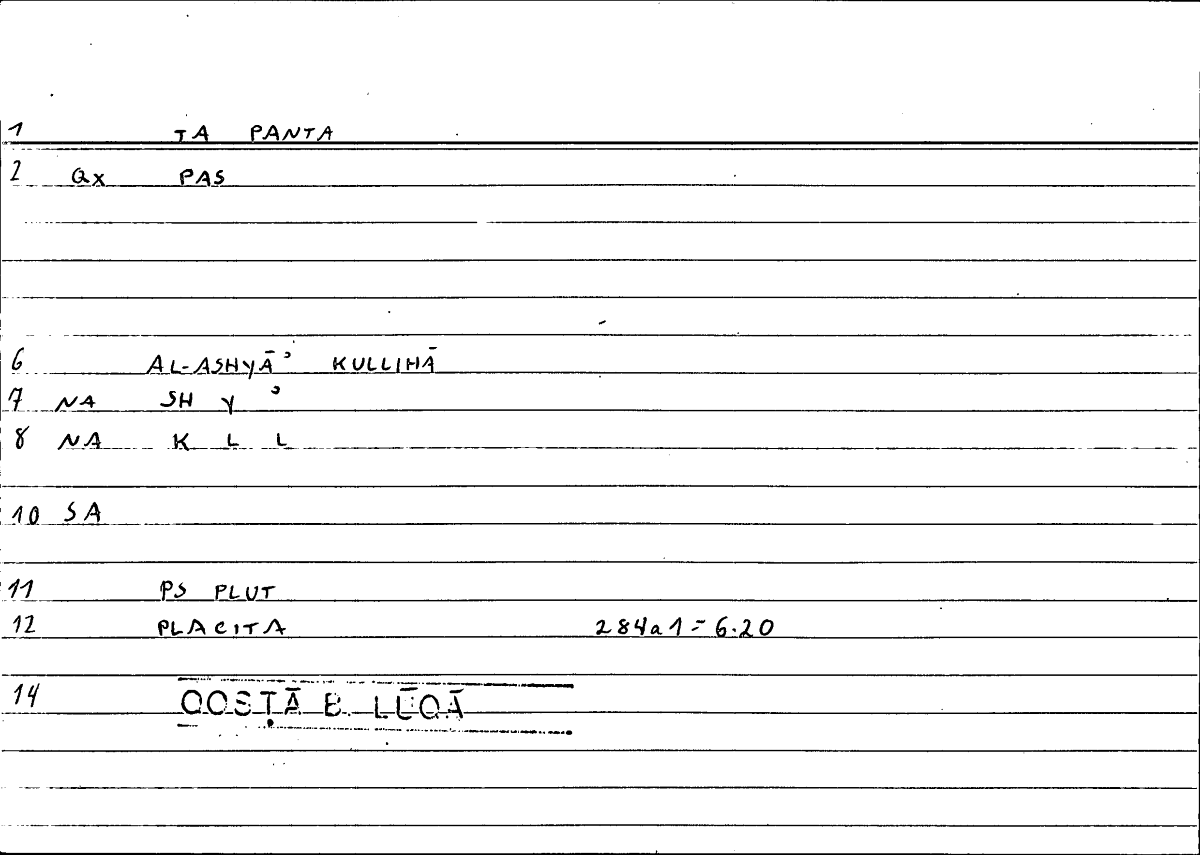 1 TA PANTA
2 Qx PAS
6 AL-ASHYĀʾ KULLIHĀ
7 NA SH Y ʾ
8 NA K L L
10 SA
11 PS PLUT
12 PLACITA 284a1=6.20
14 QOSṬĀ B. LŪQĀ